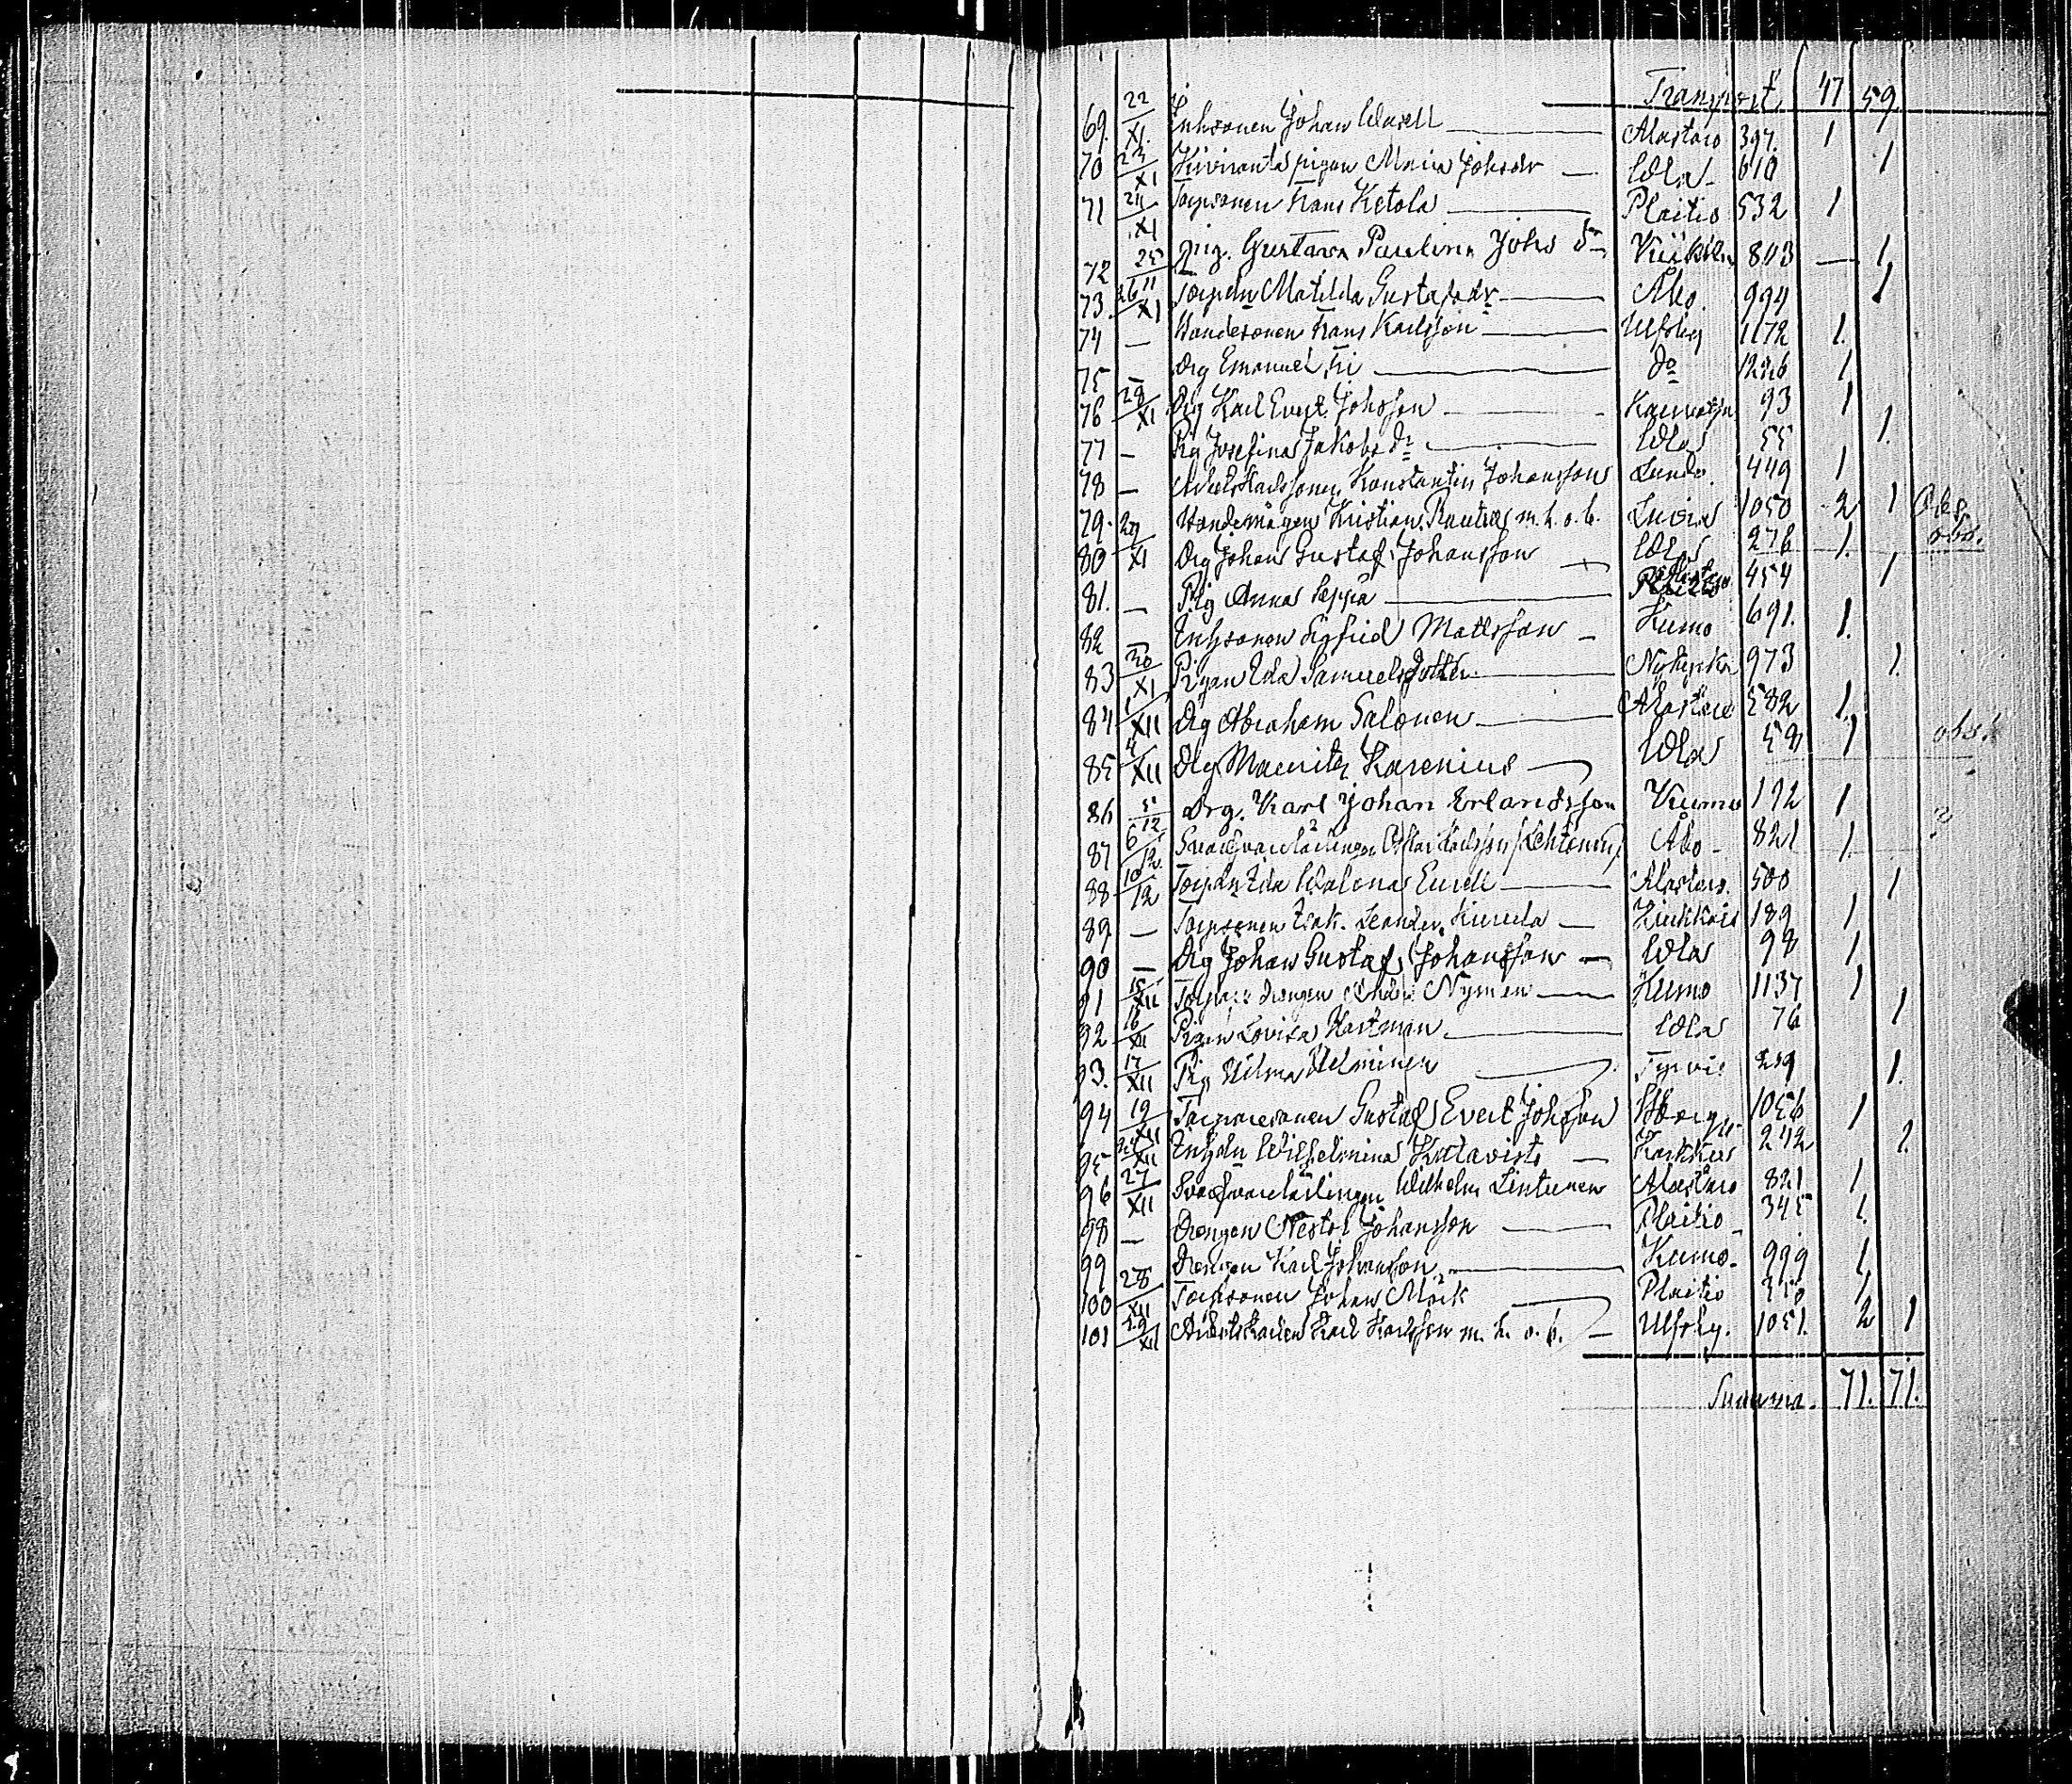 Transport 47 59
69. 22/XI. Inhsonen Johan Wasell Alastaro 397. 1
70 23/XI Kiviranta pigan Maria Johsdr Wla 610 1
71 24/XI Torpsonen Frans Ketola Pleitio 532 1
72 25/11 Pig. Gustava Paulina Johs dr Kiikka 803 — 1
73. 26/XI Torpdn Matilda Gustafsdr Åbo. 994 1
74 — Bondesonen Frans Karlsson Ulfsby 1172 1.
75 — Drg Emanuel do 1226 1
76 28/XI Drg Karl Evert Johsson 93 1
77 — Pig Josefina Jakobs dr Wla 55 1.
78 — Konstantin Johansson Lundo. 449 1
79. 29 Bondemågen Kristian m. h. o. b. Luvia 1050 2 1 Obs.
80 XI Drg Johan Gustaf Johansson Wla 276 1. obs.
81. — Pig Anna Seppä 454 1
82 — Inhsonen Sigfrid Mattsson Kumo 691. 1.
83 30/XI Pigan Ida Samuelsdotter Nykyrka 973 1.
84 1/XII Drg Abraham Salonen Alastaro 582 1.
85 4/XII Drg Mauritz Karenius Wla 58 1 obs.
86 5/12 Drg. Karl Johan Erlandsson Kumo 192 1
87 6/12 Svarfvarelärlingen Oskar Karlsson (Lehtonen) Åbo 821 1.
88 10/12 Torpdn Ida Walona Eurell Alastaro. 500 1
89 — Torpsonen Isak. Leander Kurula 189 1
90 — Drg Johan Gustaf Johansson Wla 98 1
91 15/XII drengen Nyman Kumo 1137 1
92 16/XII Pigan Lovisa Hartman Wla 76 1
93. 17/XII Pig Hilma Helminen Tyrvis 259 1.
94 19/XII Torparesonen Gustaf Evert Johsson 1056 1
95 XII Inhdn Wilhelmina Katavisto 242 1.
96 27/XII Svarfvarelärlingen Wilhelm Lintunen Alastaro 821 1
98 — Drengen Nestor Johansson Pleitio 345 1.
99 Drengen Karl Johansson Kumo. 999 1
100 28/XII Torpsonen Johan Mörk Pleitio 1
101 29/XII Arbetskarlen Karl Karlsson m. h. o. b. Ulfsby. 1051. 2 1
Summa. 71. 71.